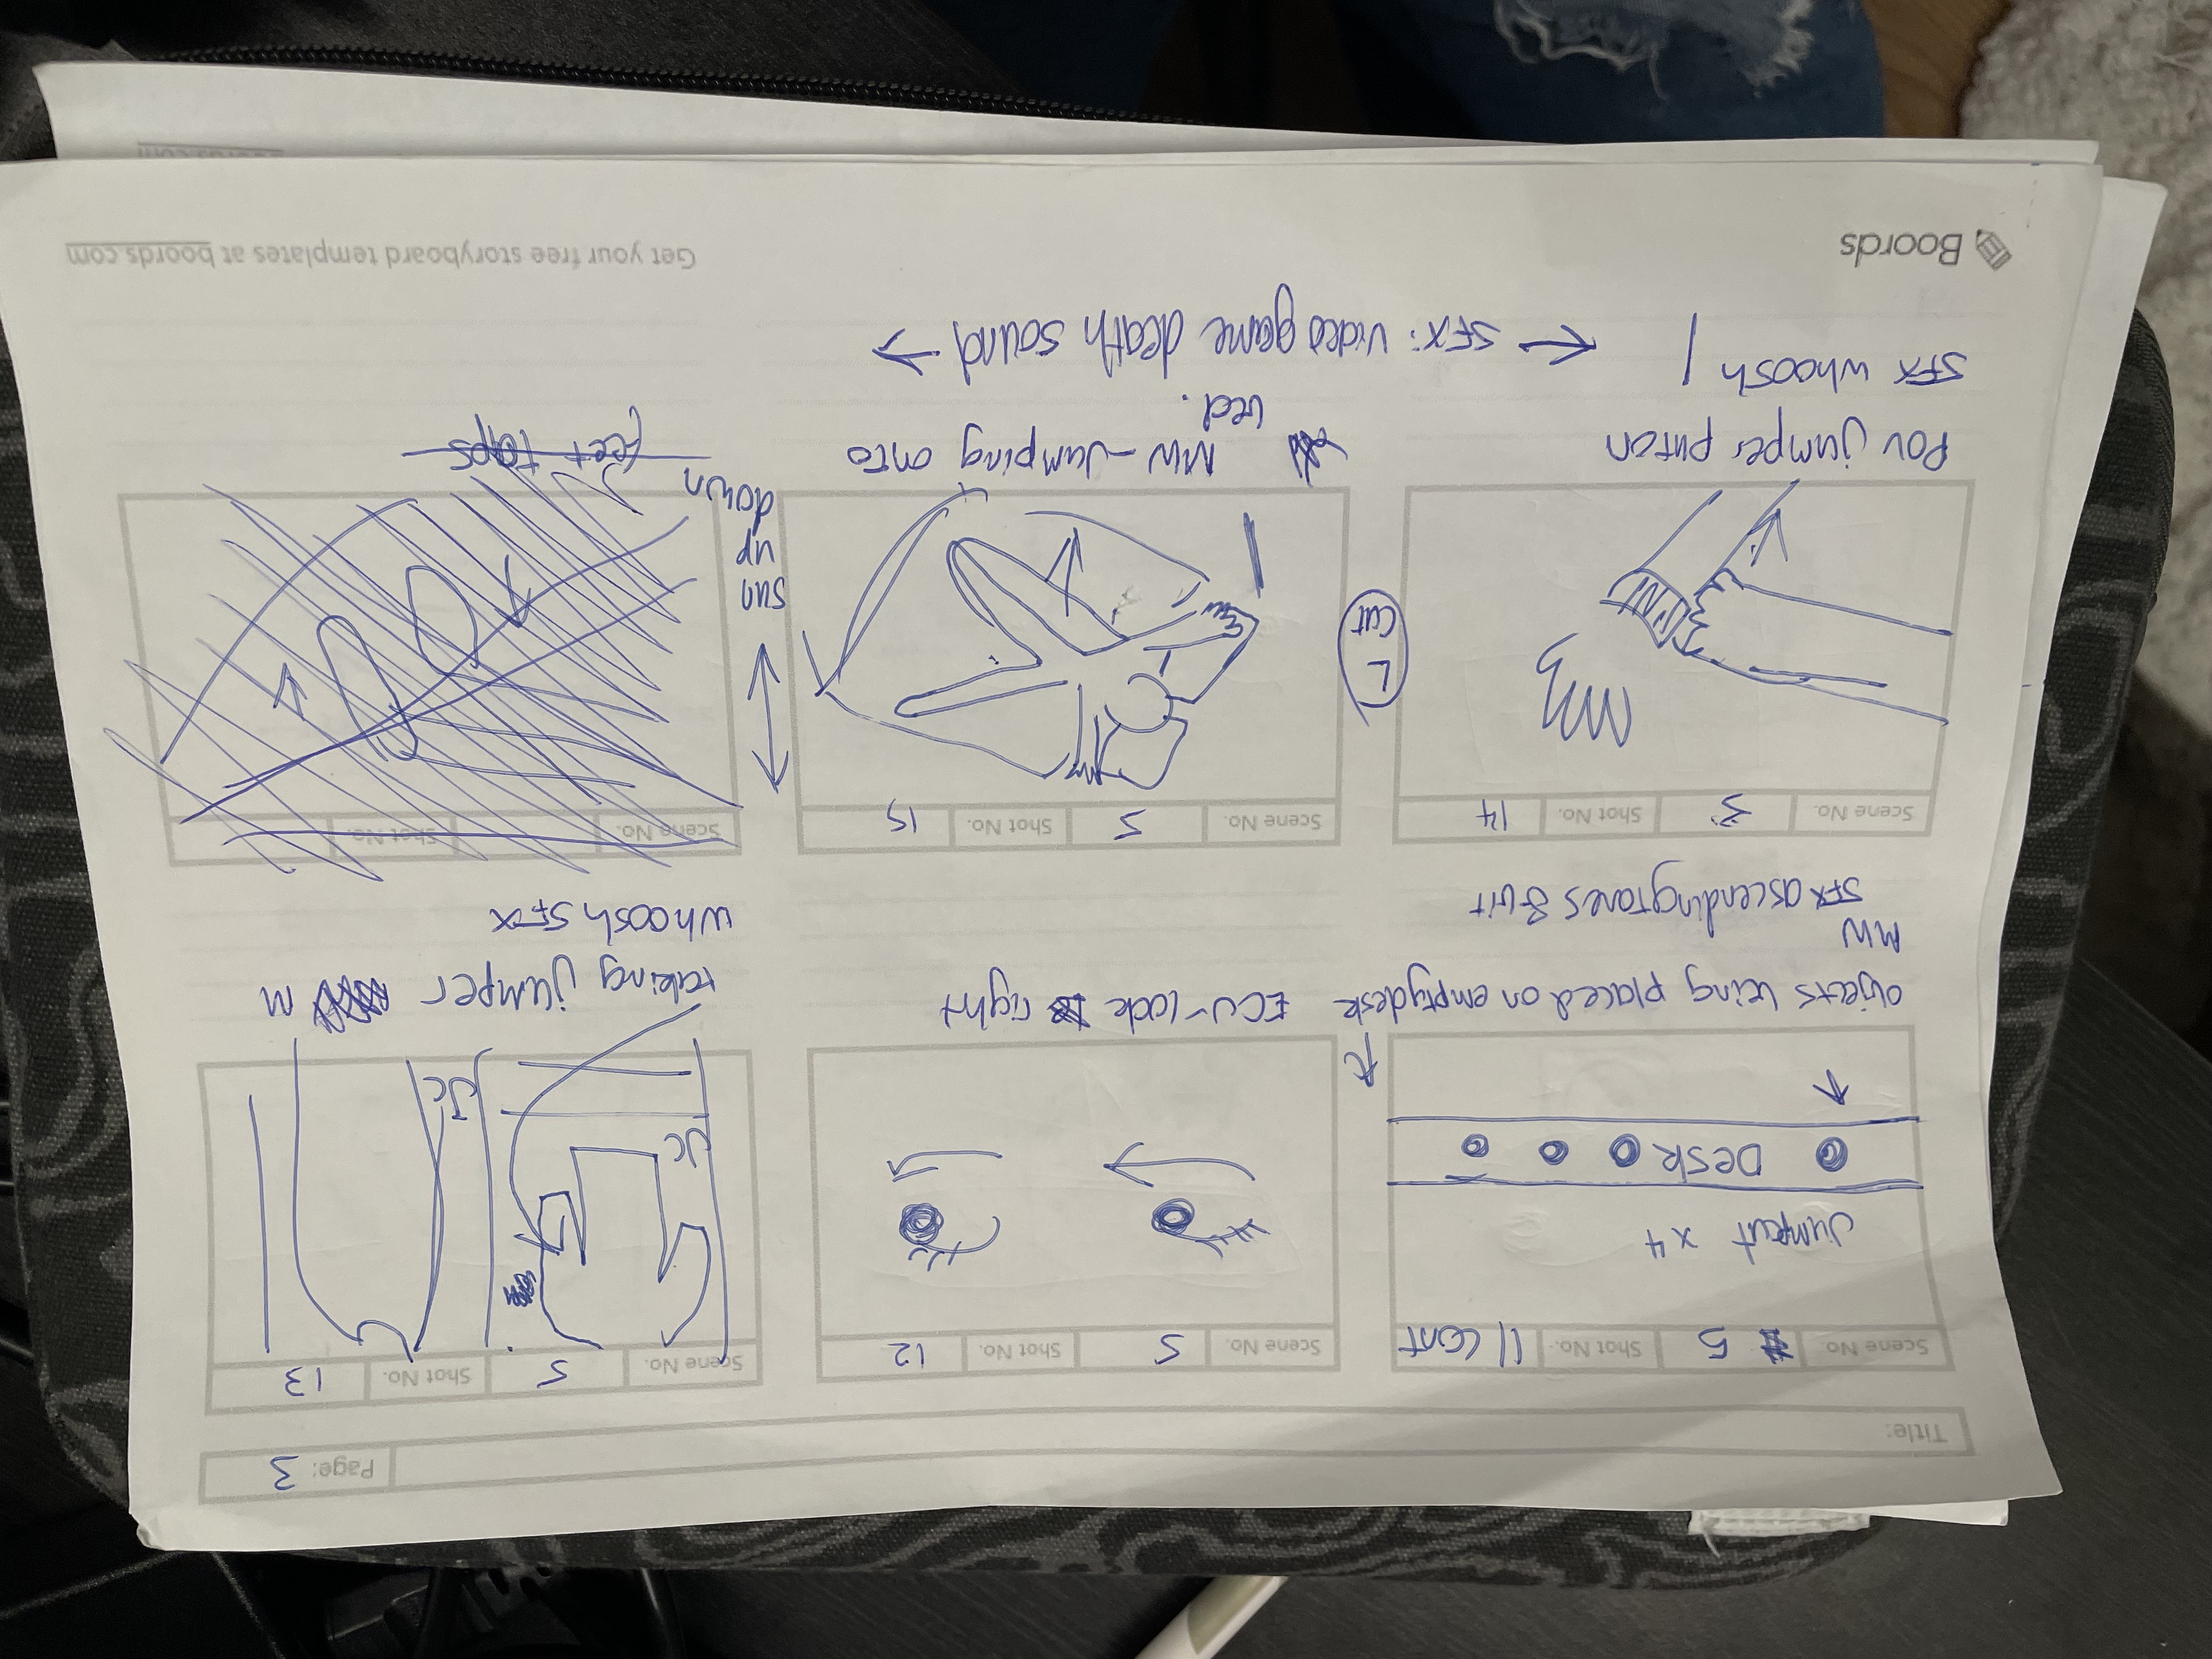 Title:
Page: 3
Scene No. 5 Shot No. 11 cont
Jumpcut x4
Desk
objects being placed on empty desk
MW
SFX ascending tones 8-bit
Scene No. 5 Shot No. 12
ECU - look right
Scene No. 5 Shot No. 13
JC
JC
taking jumper M
whoosh SFX
Scene No. 5 Shot No. 14
POV jumper put on
SFX whoosh
L
cut
Scene No. 5 Shot No. 15
MW - Jumping onto
bed.
← SFX: video game death sound →
sun
up
down
Scene No. Shot No.
feet taps
Boords
Get your free storyboard templates at boords.com